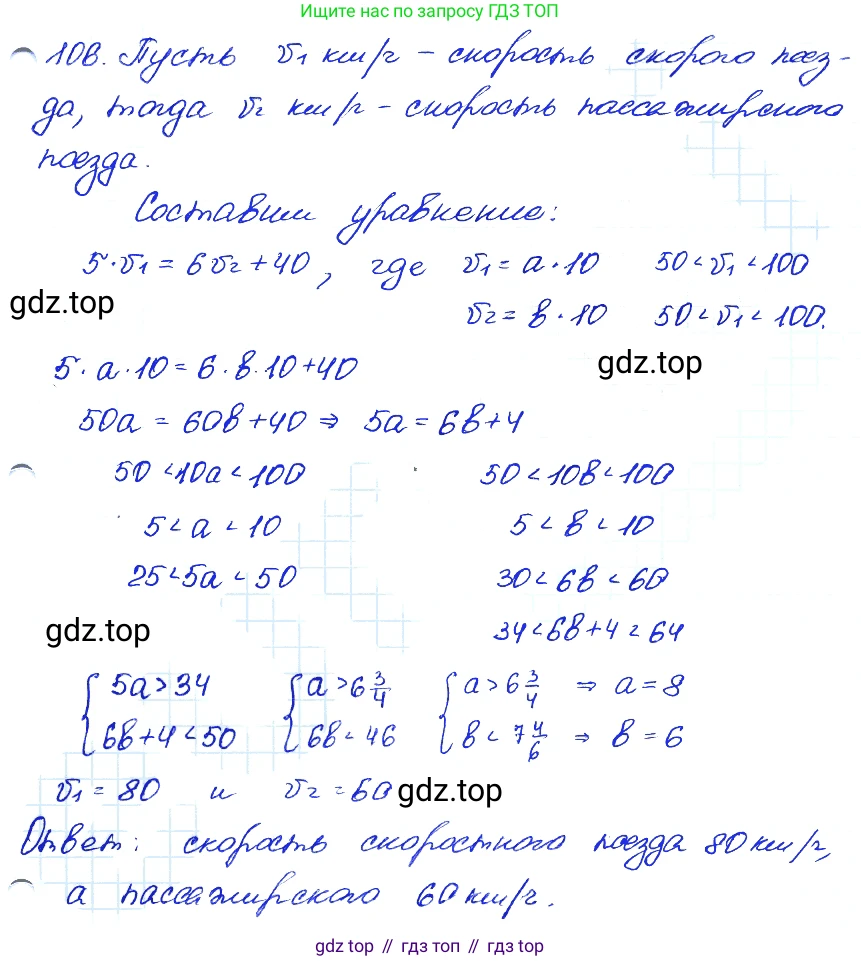 Ищите нас по запросу ГДЗ ТОП
108. Пусть v₁ км/ч – скорость скорого поез-
да, тогда v₂ км/ч – скорость пассажирского
поезда.
Составим уравнение:
5·v₁ = 6v₂ + 40, где v₁ = a·10 50 < v₁ < 100
gdz.top
v₂ = b·10 50 < v₁ < 100.
5·a·10 = 6·b·10 + 40
gdz.top
50a = 60b + 40 ⇒ 5a = 6b + 4
50 < 10a < 100 50 < 10b < 100
5 < a < 10 5 < b < 10
25 < 5a < 50 30 < 6b < 60
gdz.top
34 < 6b + 4 < 64
{ 5a > 34 { a > 6 3/4 { a > 6 3/4 ⇒ a = 8
{ 6b + 4 < 50 { 6b < 46 { b < 7 4/6 ⇒ b = 6
v₁ = 80 и v₂ = 60
gdz.top
Ответ: скорость скоростного поезда 80 км/ч,
а пассажирского 60 км/ч.
gdz top // гдз топ // gdz top